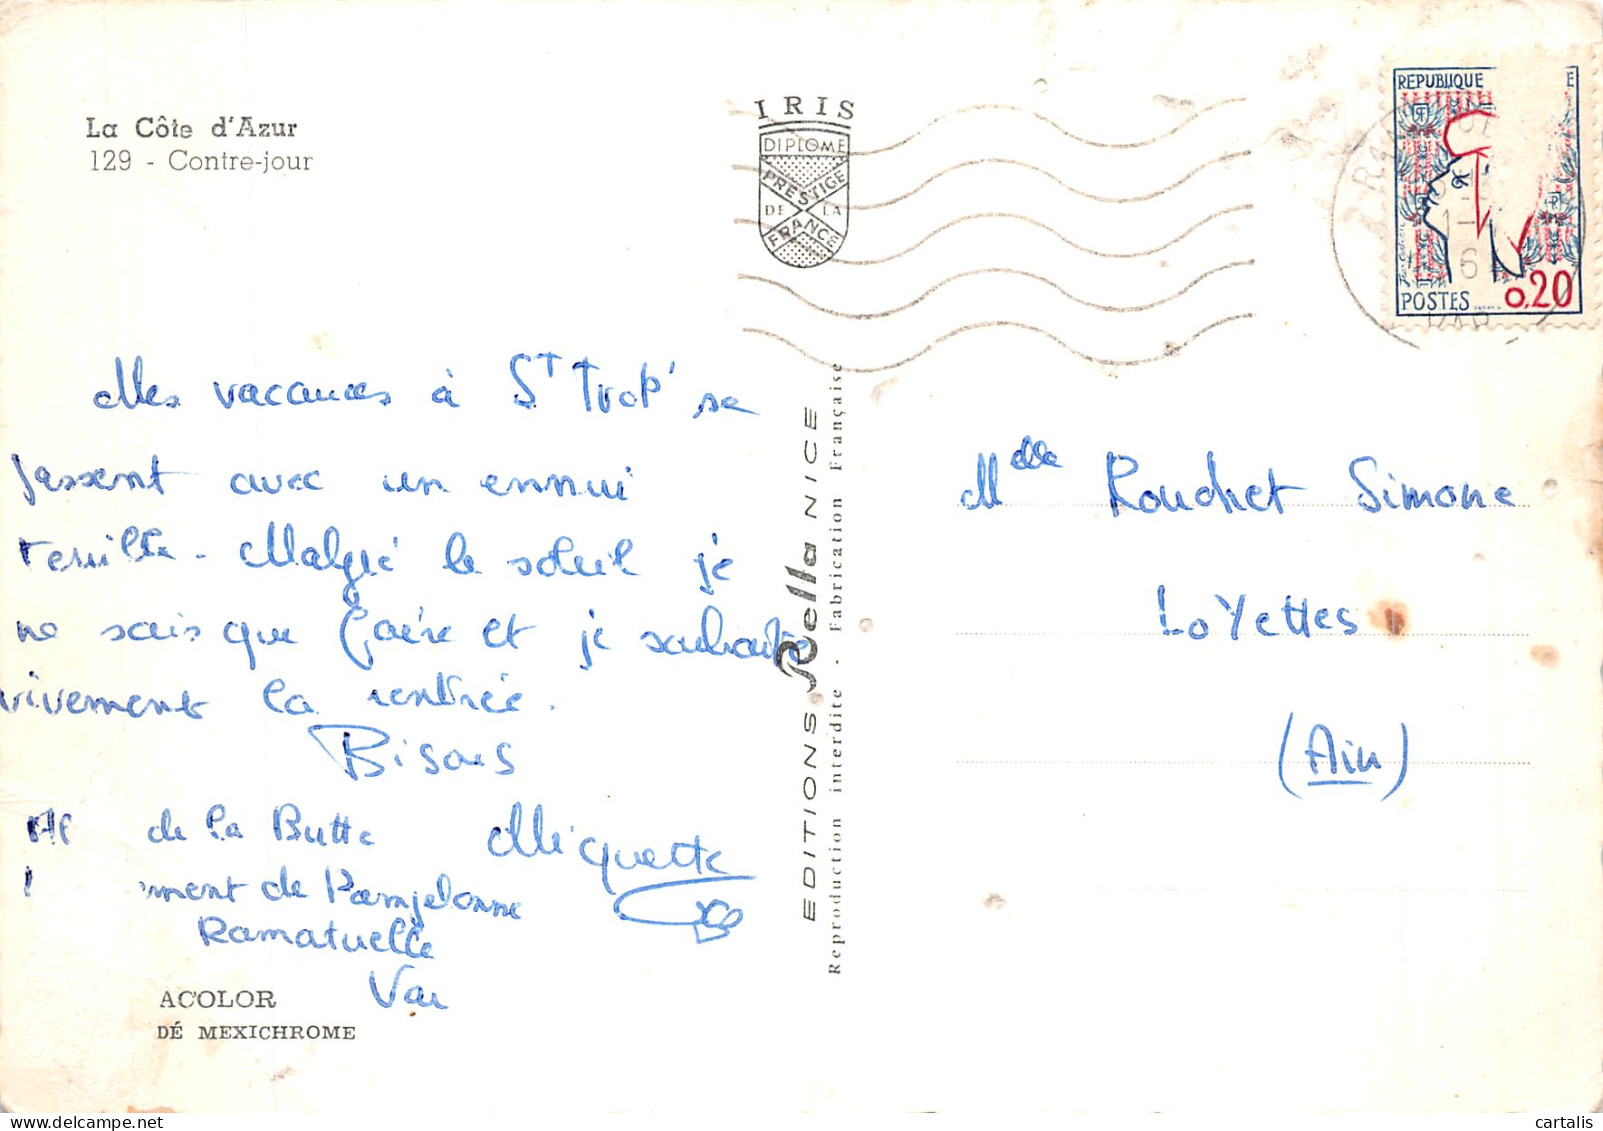 La Côte d'Azur
129 - Contre-jour
IRIS
DIPLOME
PRESTIGE
DE LA
FRANCE
REPUBLIQUE E
POSTES 0,20
Mes vacances à St Trop' se
passent avec un ennui
terrible. Malgré le soleil je
ne sais que faire et je souhaite
vivement la rentrée.
Bisous
Miquette
de la Butte
ement de Pampelonne
Ramatuelle
Var
ACOLOR
DÉ MEXICHROME
EDITIONS Rella NICE
Reproduction interdite - Fabrication Française
Melle Rouchet Simone
LoYettes
(Ain)
cartalis